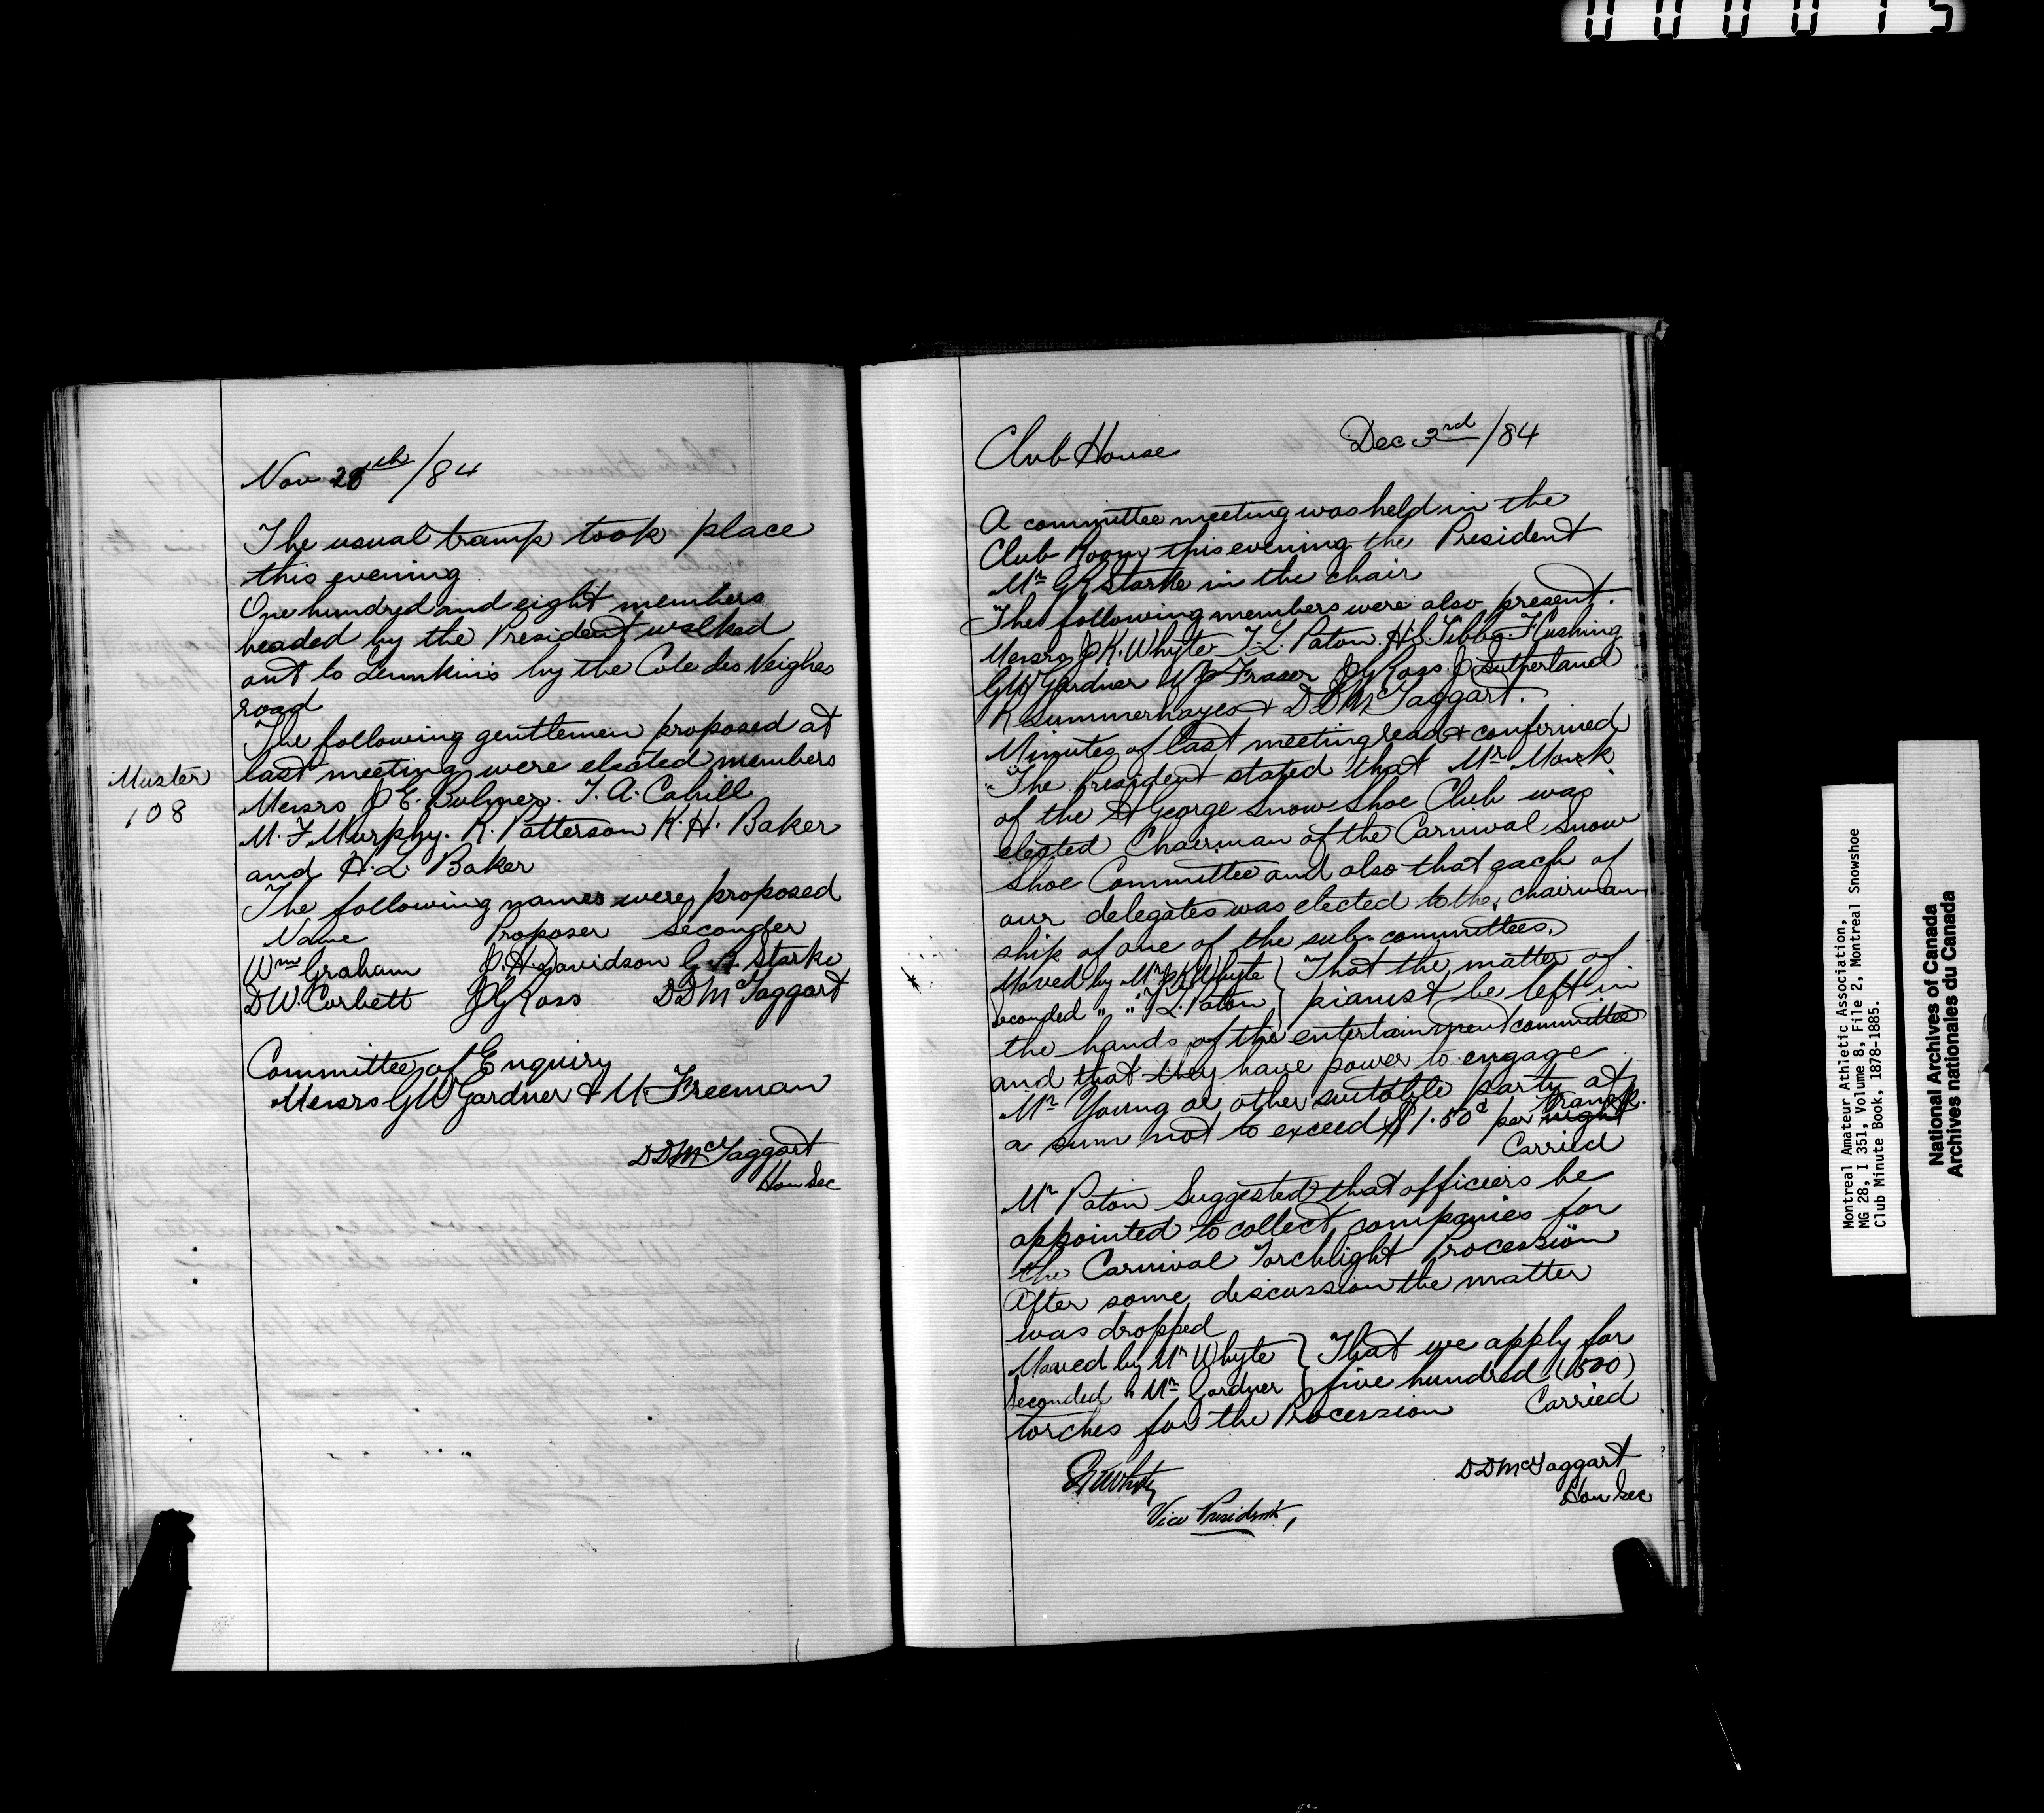 000015
Nov 28th/84
The usual tramp took place
this evening
One hundred and eight members
headed by the President walked
out to Lumkins by the Cote des Neighes
road
The following gentlemen proposed at
last meeting were elected members
Muster
108
Messrs J E. Bulmer. T. A. Cahill
M. F Murphy. R. Patterson R. H. Baker
and H. L. Baker
The following names were proposed
Name Proposer Seconder
Wm Graham J. H. Davidson G. R. Starke
D W. Corbett J G Ross D D McTaggart
Committee of Enquiry
Messrs G W Gardner & M. Freeman
D D McTaggart
Hon Sec
Club House Dec 3rd/84
A committee meeting was held in the
Club Room this evening the President
Mr G R Starke in the chair
The following members were also present.
Messrs J K. Whyte T. L. Paton. H S. Tibbs. F Cushing
G W Gardner W J Fraser J G Ross. J Sutherland
R Summerhayes & D D McTaggart.
Minutes of last meeting read & confirmed
The President stated that Mr Monk
of the St George Snow Shoe Club was
elected Chairman of the Carnival Snow
Shoe Committee and also that each of
our delegates was elected to the chairman
ship of one of the sub committees.
Moved by Mr J K Whyte } That the matter of
Seconded " " T L. Paton } pianist be left in
the hands of the entertainment committee
and that they have power to engage
Mr Young or other suitable party at
a sum not to exceed $1.50c per night tramp.
Carried
Mr Paton Suggested that officers be
appointed to collect companies for
the Carnival Torchlight Procession
After some discussion the matter
was dropped
Moved by Mr Whyte } That we apply for
Seconded " Mr Gardner } five hundred (500)
torches for the Procession Carried
D D McTaggart
Hon Sec
Vice President,
Montreal Amateur Athletic Association,
MG 28, I 351, Volume 8, File 2, Montreal Snowshoe
Club Minute Book, 1878-1885.
National Archives of Canada
Archives nationales du Canada